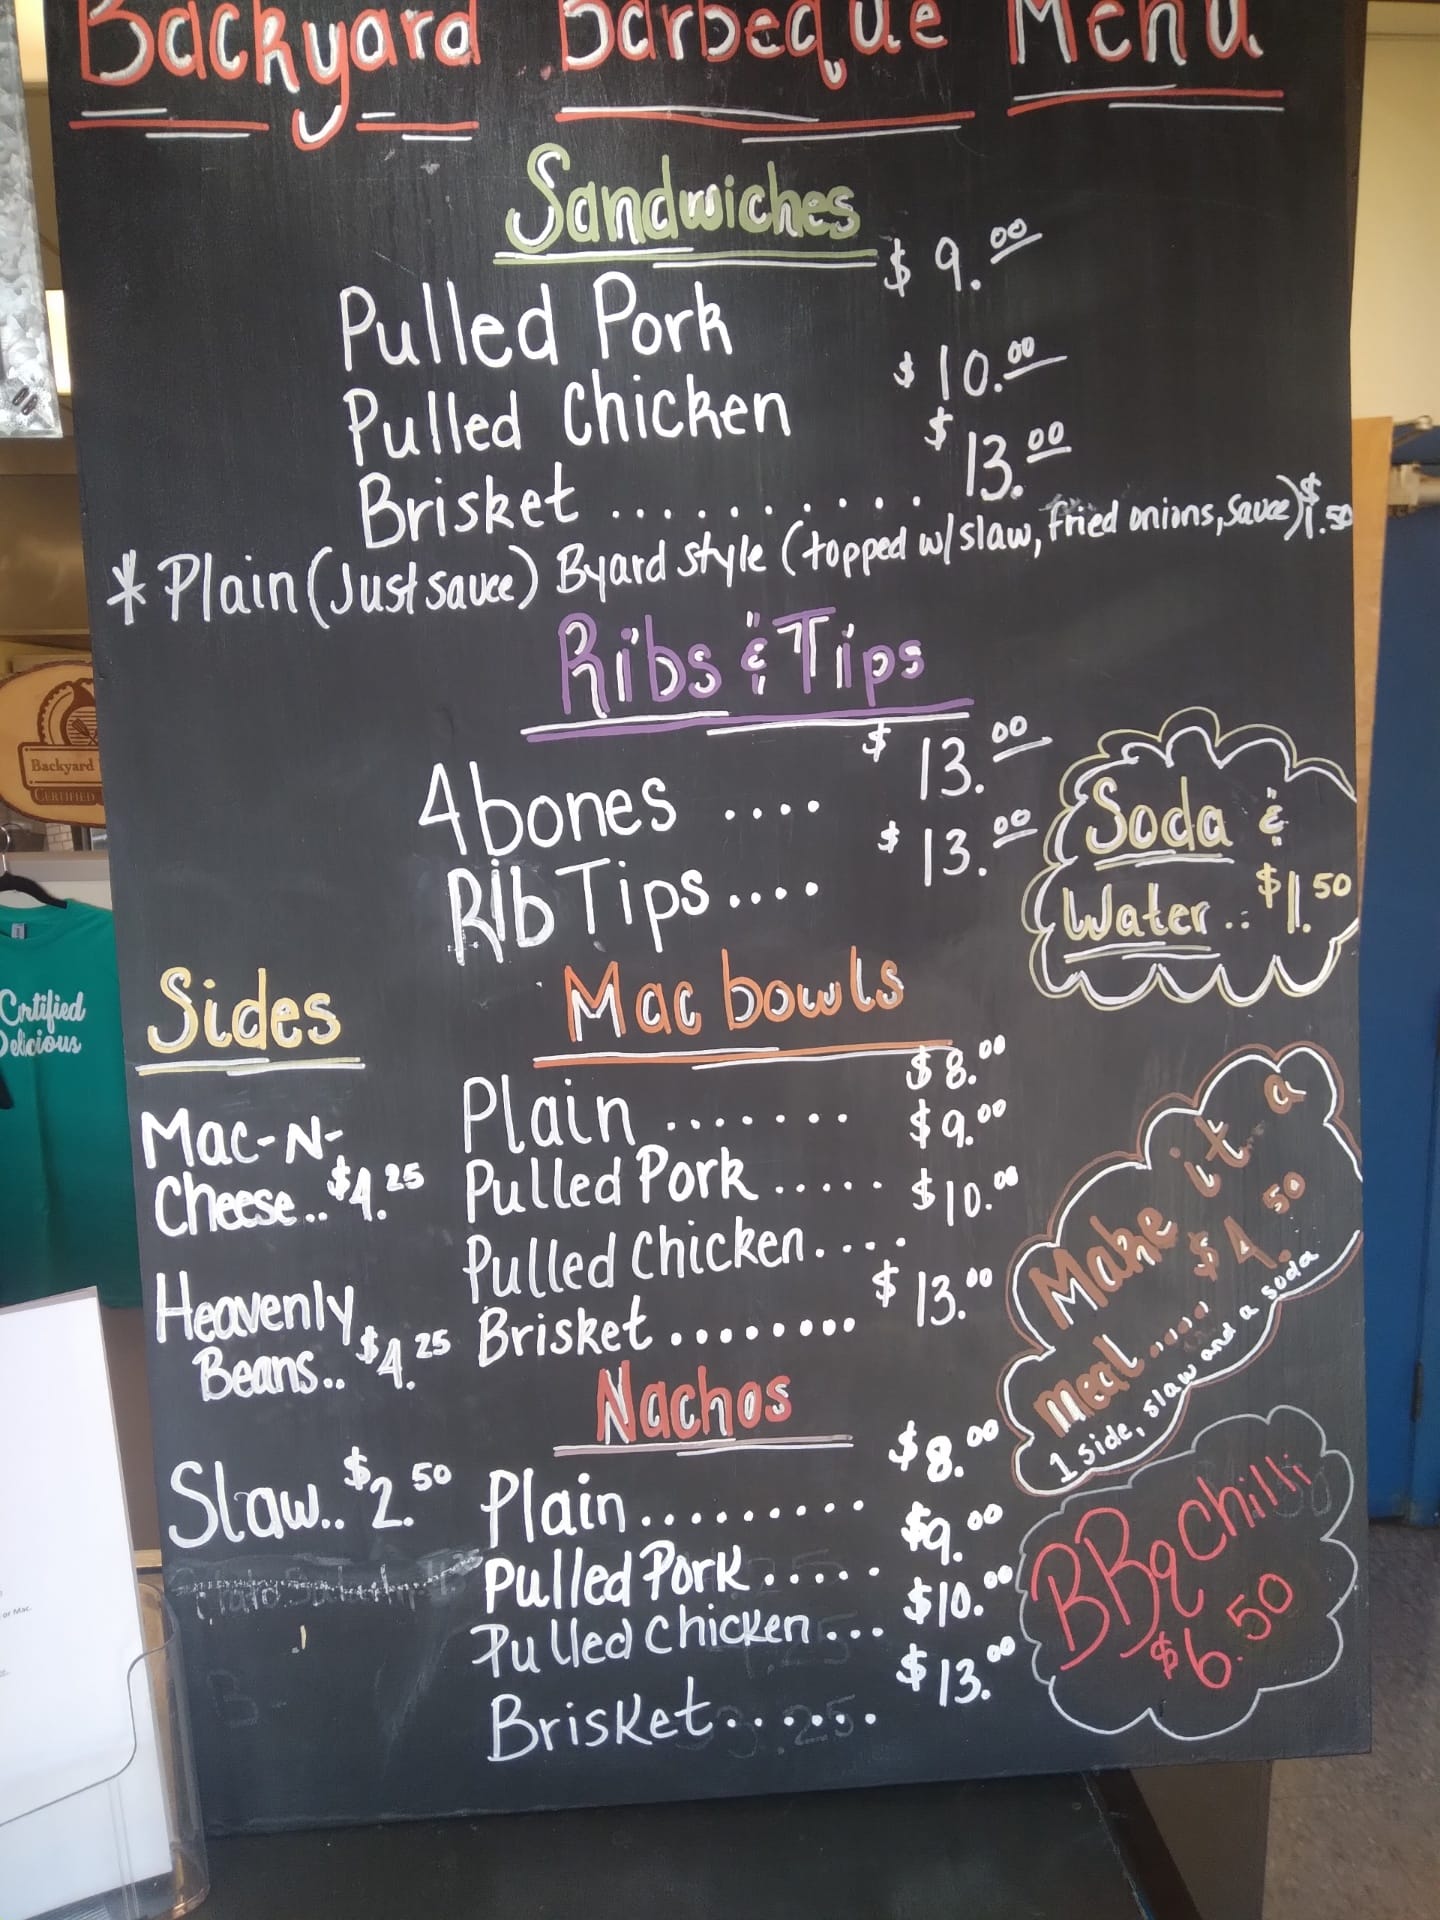 Backyard Barbeque Menu
Sandwiches
Pulled Pork $9.00
Pulled Chicken $10.00
Brisket .......... $13.00
*Plain (Just sauce) Byard style (topped w/ slaw, fried onions, sauce) $1.50
Ribs & Tips
4 bones .... $13.00
Rib Tips .... $13.00
Soda &
Water .. $1.50
Sides
Mac-N-
Cheese.. $4.25
Heavenly
Beans.. $4.25
Slaw.. $2.50
Mac bowls
Plain ....... $8.00
Pulled Pork ..... $9.00
Pulled Chicken .... $10.00
Brisket ........ $13.00
Make it a
meal ..... $4.50
1 side, slaw and a soda
Nachos
Plain ......... $8.00
Pulled Pork ..... $9.00
Pulled Chicken ... $10.00
Brisket ...... $13.00
BBq Chilli
$6.50
Backyard
CERTIFIED
Certified
Delicious
or Mac.